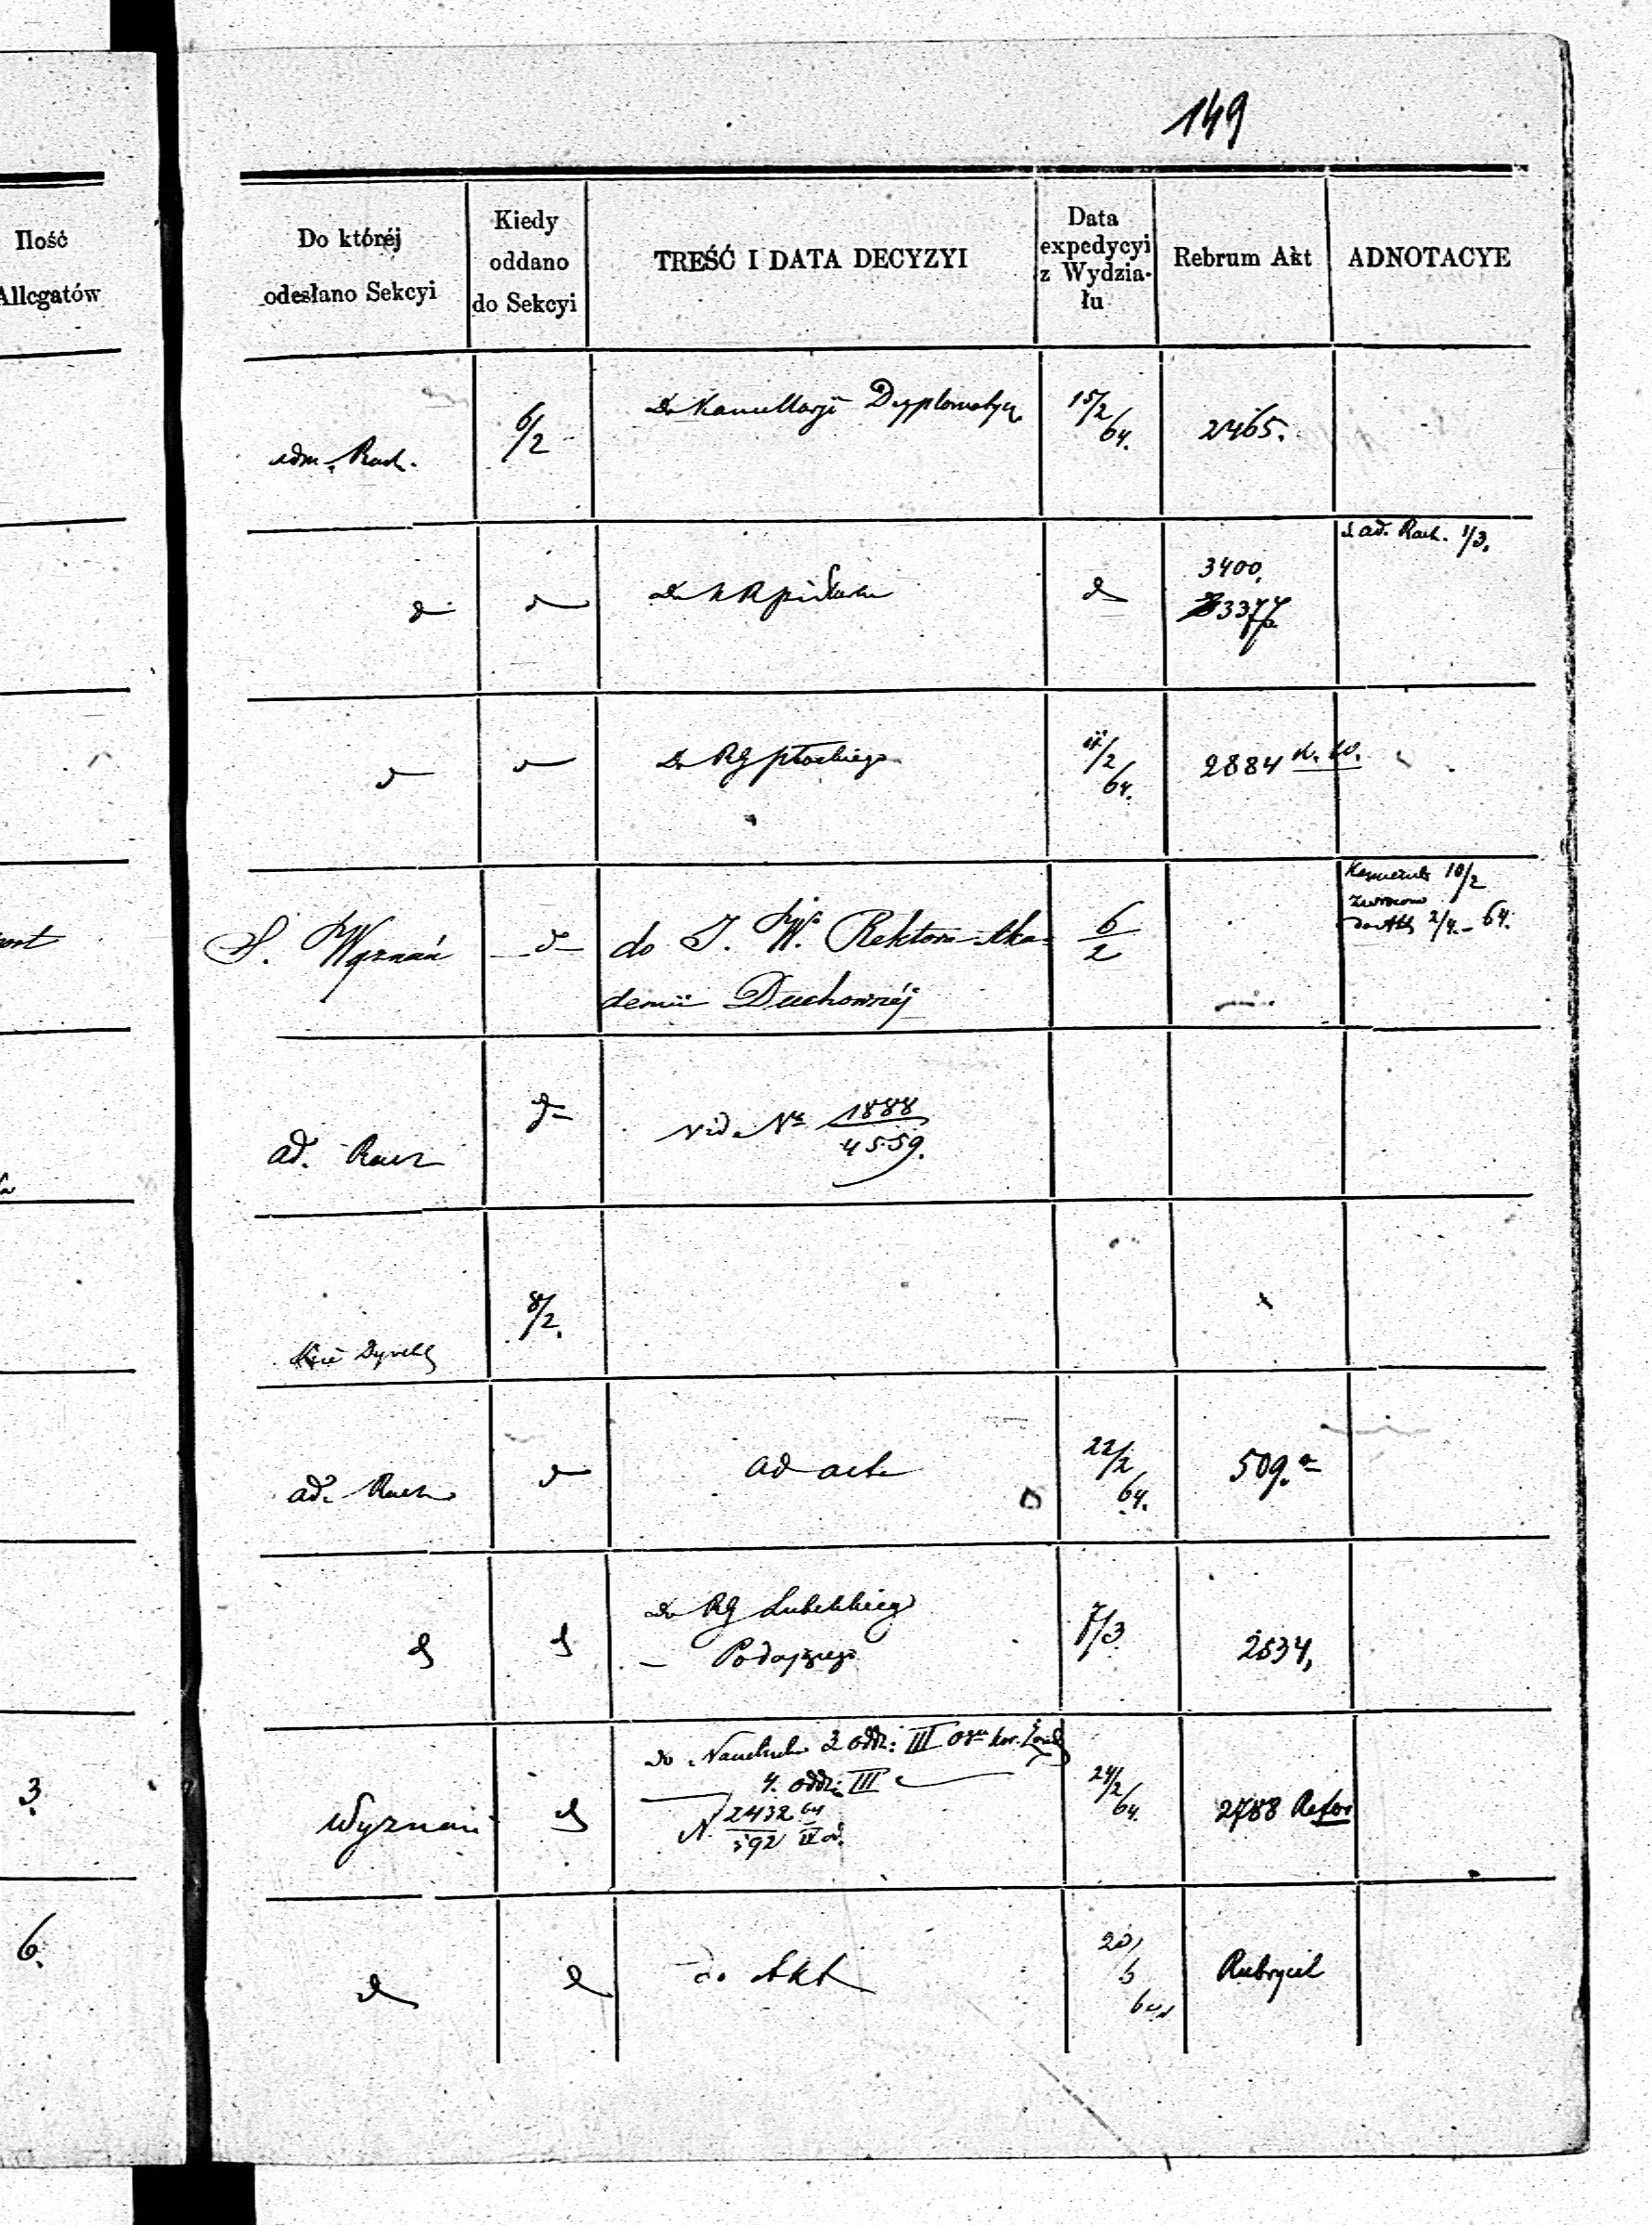 149
Ilość
Allegatów
Do któréj
odesłano Sekcyi
Kiedy
oddano
do Sekcyi
TREŚĆ I DATA DECYZYI
Data
expedycyi
z Wydzia-
łu
Rebrum Akt
ADNOTACYE
adm. Rach.
6/2
Do Kancellaryi Dyplomatycz
15/2
64.
2465.
ad. Rach. 1/3.
d
d
Do
d
3400.
3377
d
d
Do RG Płockiego
11/2
64.
2884
S. Wyznań
d
do J. W. Rektora Aka=
demii Duchownéj
6/2
10/2
zwrócono
2/4 - 64.
ad. Rach
d
vide No 1888
4559.
8/2.
Dyrekt
ad. Rach
d
ad acta
22/2
64.
509.a
d
d
Do RG Lubelskiego
– Podającego
7/3
2534,
3.
Wyznań
d
Do Naczelnika 3 oddz: III
4. oddz: III
N. 2432 64
592 IV od.
24/2
64.
2788
6.
d
d
do Akt
20/
Rubrycel